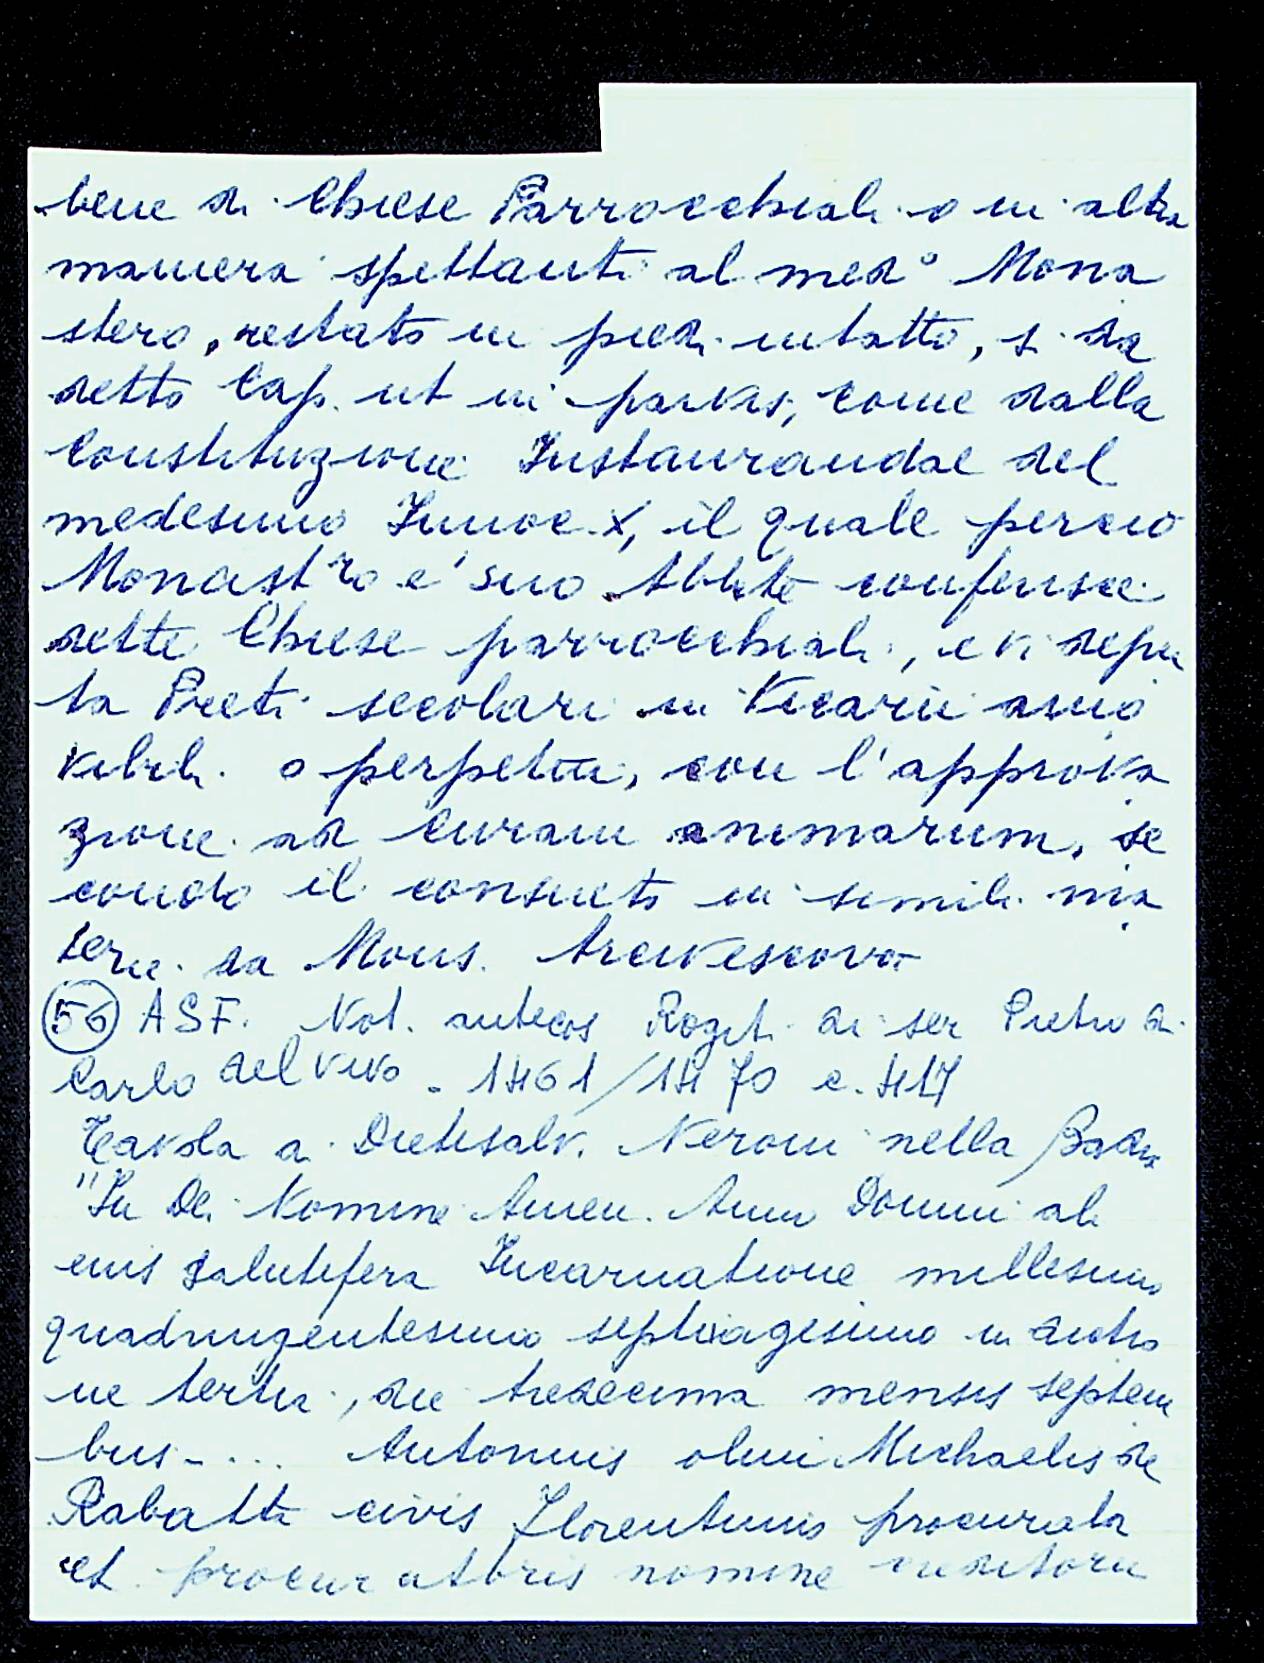 bene di Chiese Parrocchiali o in altra
maniera spettanti al med° Mona
stero, restato in piedi intatto, si da
detto Cap. ut in parvis, come dalla
Constituzione Instaurandae del
medesimo Innoc X, il quale perciò
Monast.ro e' suo Abbate conferisce
dette Chiese parrocchiali, e vi depu
ta Preti secolari in Vicarii amo
vibili o perpetui, con l'approva
zione ad curam animarum, se
condo il consueto in simili ma
terie da Mons. Arcivescovo
56 ASF. Not. antecos Rogiti di ser Pietro di
Carlo del Vivo - 1461/1470 c. 417
Tavola a Dietisalv. Neroni nella Badia
"In Dei Nomine Amen. Anno Domini ab
eius salutifera Incarnatione millesimo
quadringentesimo septuagesimo in dictio
ne tertia, die tredecima mensis septem
bris - ... Antonius olim Michaelis de
Rabatta civis Florentinus procurator
et procuratoris nomine